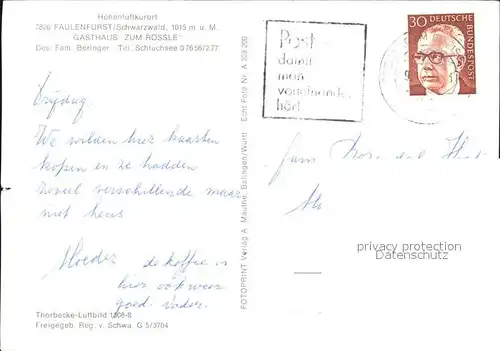 Höhenluftkurort
7826 FAULENFÜRST/Schwarzwald, 1015 m ü. M.
GASTHAUS "ZUM RÖSSLE"
Bes. Fam. Beringer Tel. Schluchsee 07656/277
Vrijdag
We wilden hier kaarten
kopen en ze hadden
zoveel verschillende maar
niet heus
Moeder de koffie is
hier ook weer
goed. Vader.
Thorbecke-Luftbild 1308-8
Freigegeb. Reg. v. Schwa. G 5/3704
FOTOPRINT Verlag A. Mauthe, Balingen/Württ. Echt Foto Nr. A 308 200
Post
damit
man
voneinander
hört
30 DEUTSCHE BUNDESPOST
Fam
privacy protection